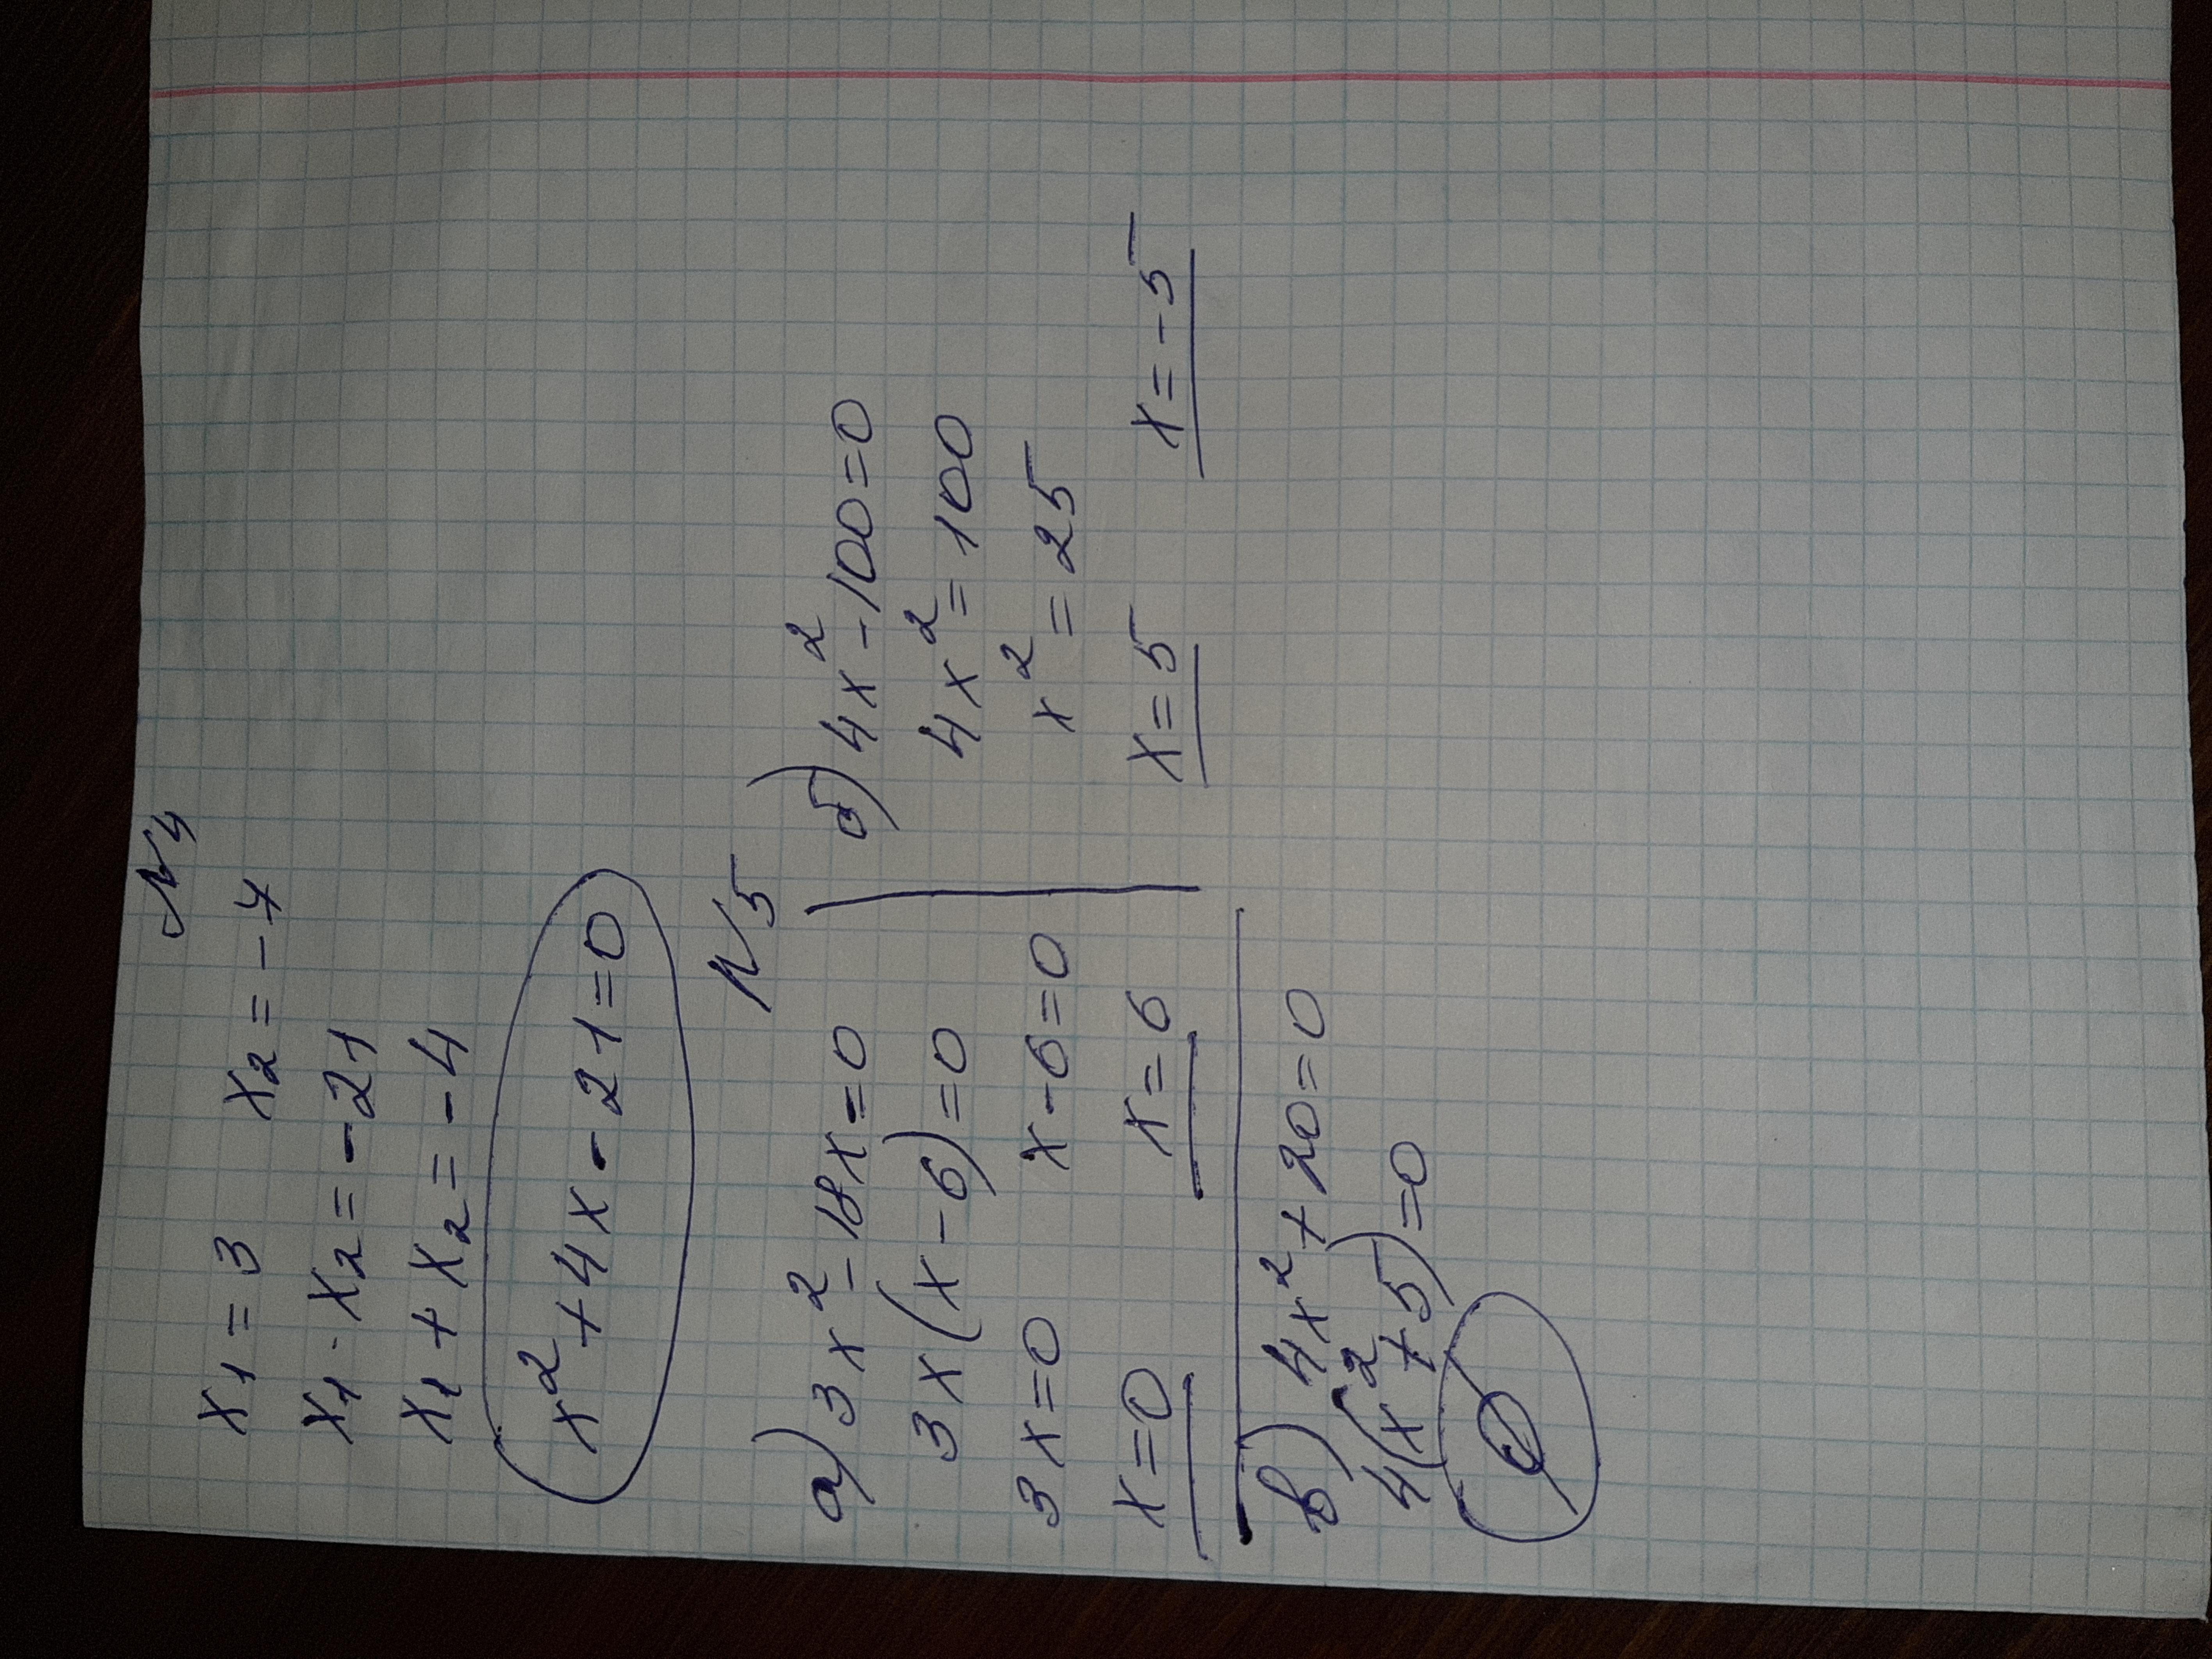 N4
x₁ = 3 x₂ = -7
x₁ · x₂ = -21
x₁ + x₂ = -4
x² + 4x - 21 = 0
N5
а) 3x² - 18x = 0
3x(x - 6) = 0
3x = 0 x - 6 = 0
x = 0 x = 6
б) 4x² - 100 = 0
4x² = 100
x² = 25
x = 5 x = -5
в) 4x² + 20 = 0
4(x² + 5) = 0
∅